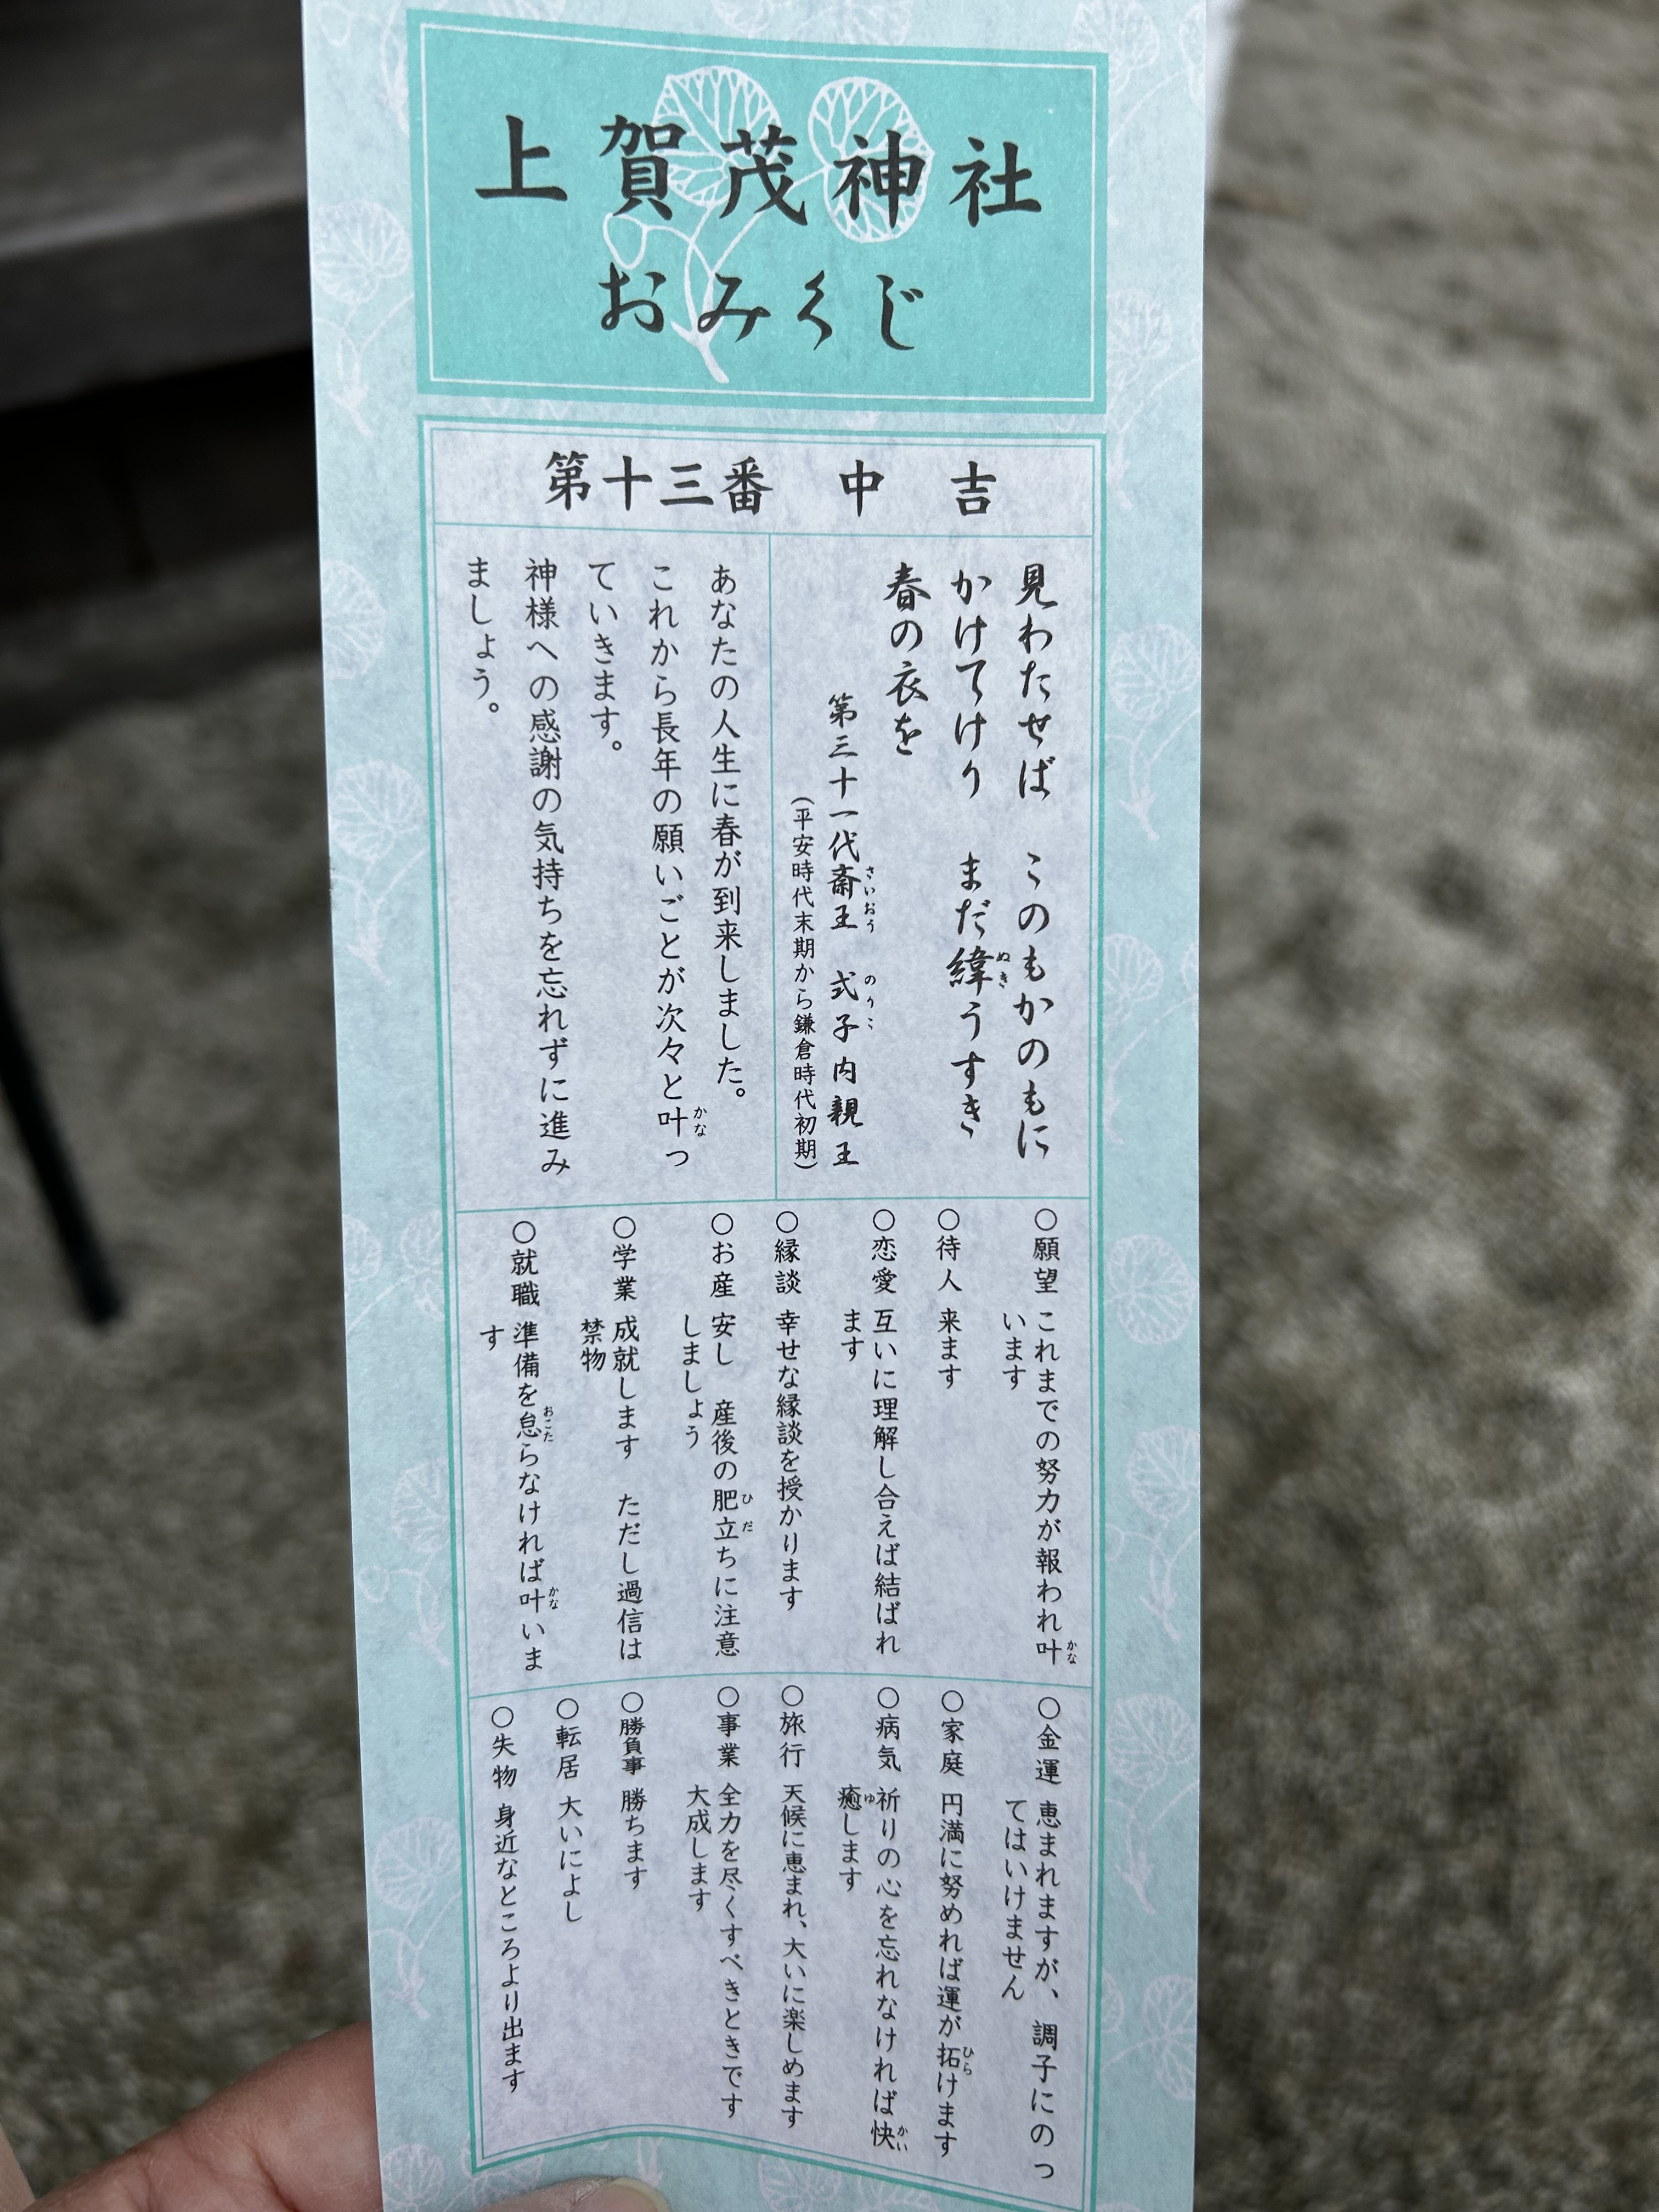 上賀茂神社
おみくじ
第十三番 中 吉
見わたせば このもかのもに
かけてけり まだ緯うすき
春の衣を
第三十一代斎王 式子内親王
(平安時代末期から鎌倉時代初期)
あなたの人生に春が到来しました。
これから長年の願いごとが次々と叶っ
ていきます。
神様への感謝の気持ちを忘れずに進み
ましょう。
○願望 これまでの努力が報われ叶
います
○待人 来ます
○恋愛 互いに理解し合えば結ばれ
ます
○縁談 幸せな縁談を授かります
○お産 安し 産後の肥立ちに注意
しましょう
○学業 成就します ただし過信は
禁物
○就職 準備を怠らなければ叶いま
す
○金運 恵まれますが、調子にのっ
てはいけません
○家庭 円満に努めれば運が拓けます
○病気 祈りの心を忘れなければ快
癒します
○旅行 天候に恵まれ、大いに楽しめます
○事業 全力を尽くすべきときです
大成します
○勝負事 勝ちます
○転居 大いによし
○失物 身近なところより出ます